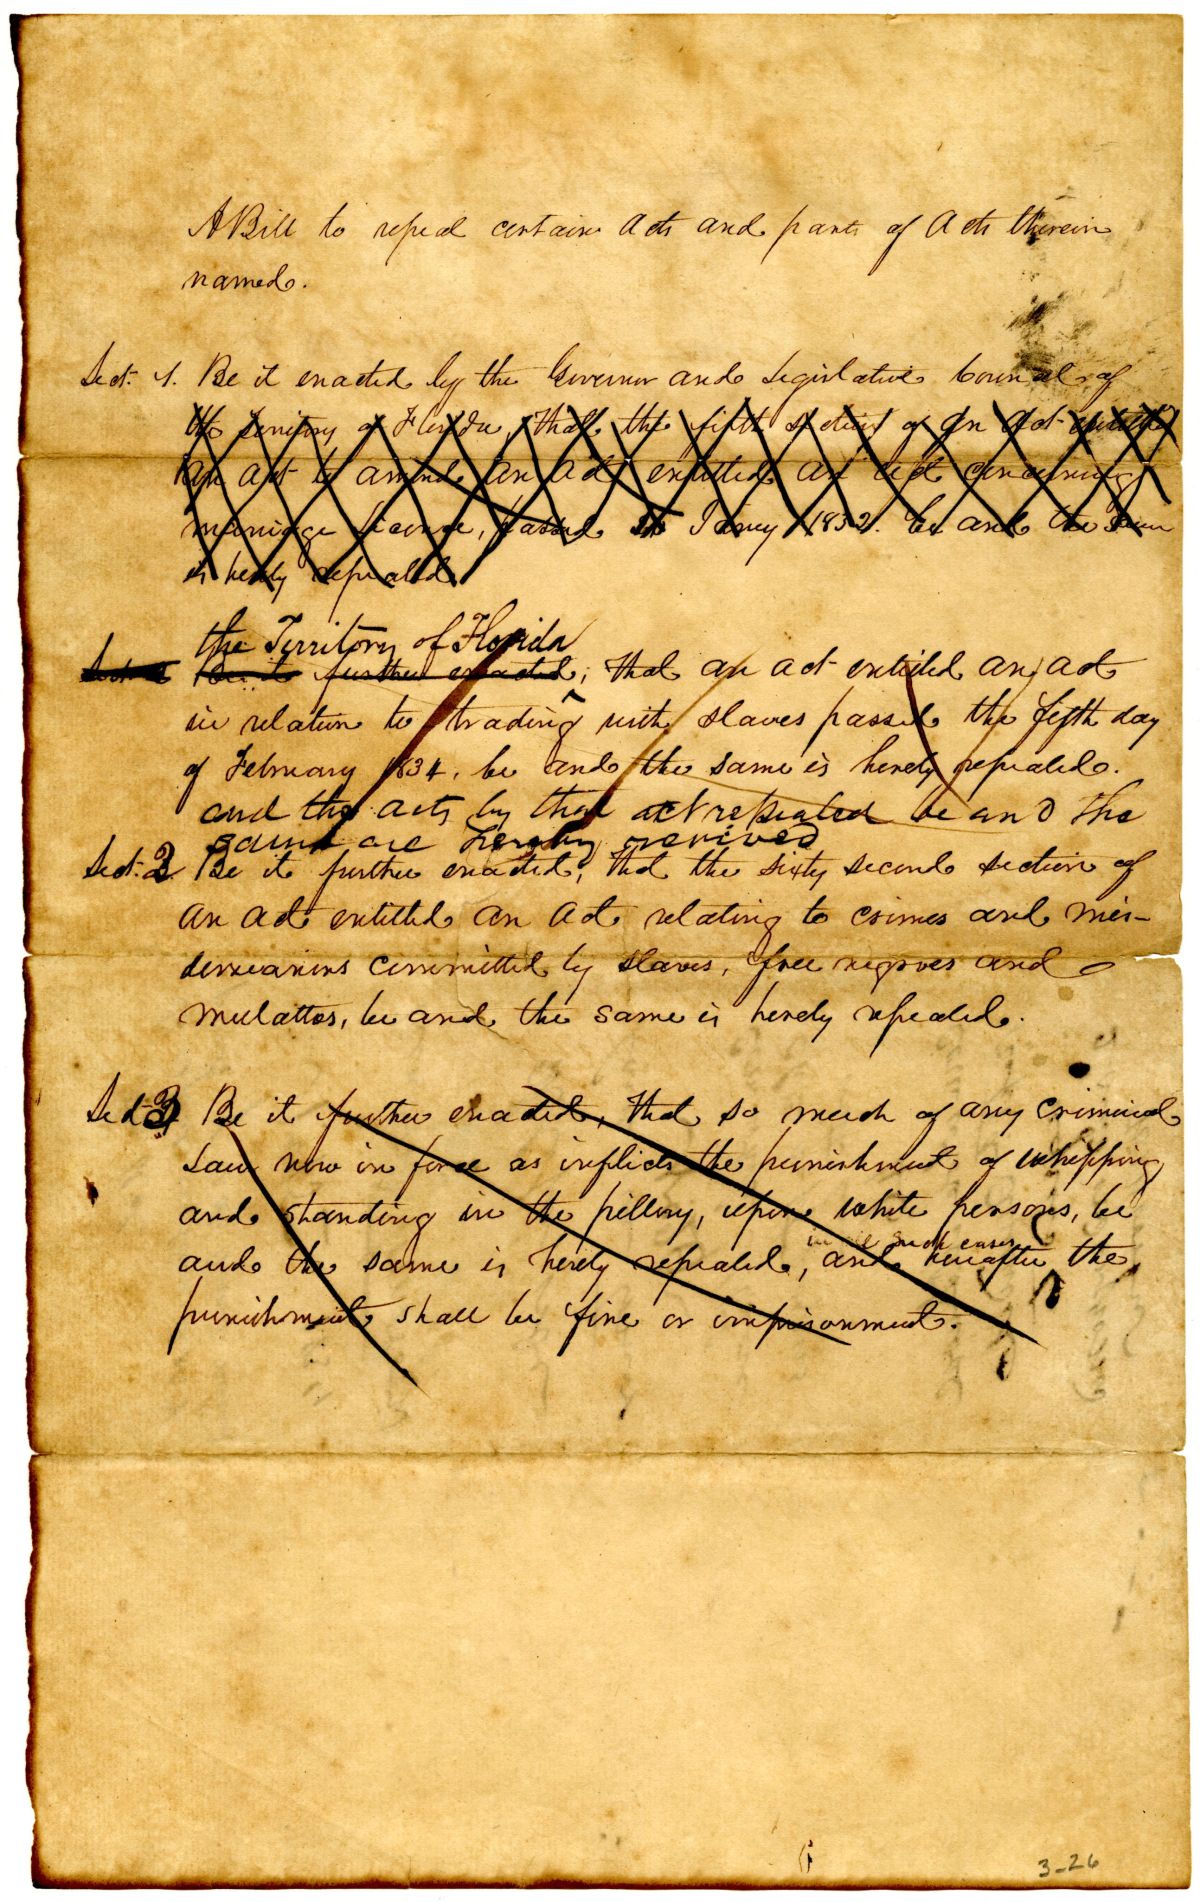 A Bill to repeal certain Acts and parts of Acts therein
named.
Sect. 1. Be it enacted by the Governor and Legislative Council of
the Territory of Florida, that the fifth section of an Act entitled
An act to amend an Act entitled an act concerning
marriage license, passed Jany 1832. be and the same
is hereby repealed.
the Territory of Florida
Sect. Be it further enacted, that an act entitled an act
in relation to trading with slaves passed the fifth day
of February 1834, be and the same is hereby repealed.
and the acts by that act repealed be and the
same are hereby revived
Sect. 2. Be it further enacted, that the sixty second section of
an act entitled an Act relating to crimes and mis-
demeanors committed by slaves, free negroes and
mulattos, be and the same is hereby repealed.
Sect 3 Be it further enacted, that so much of any criminal
Law now in force as inflicts the punishment of whipping
and standing in the pillory, upon white persons, be
in all such cases
and the same is hereby repealed, and hereafter the
punishment shall be fine or imprisonment.
3-26